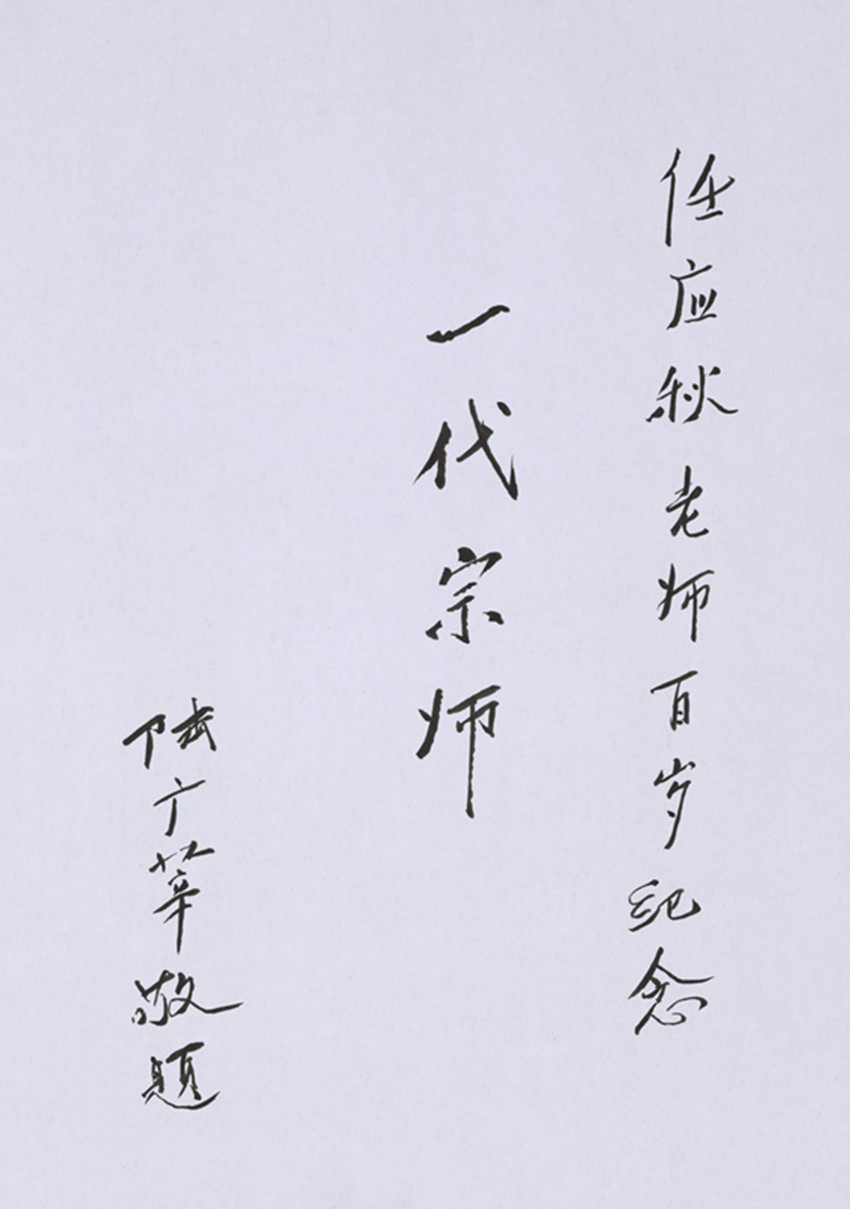 任应秋老师百岁纪念
一代宗师
陆广莘敬题